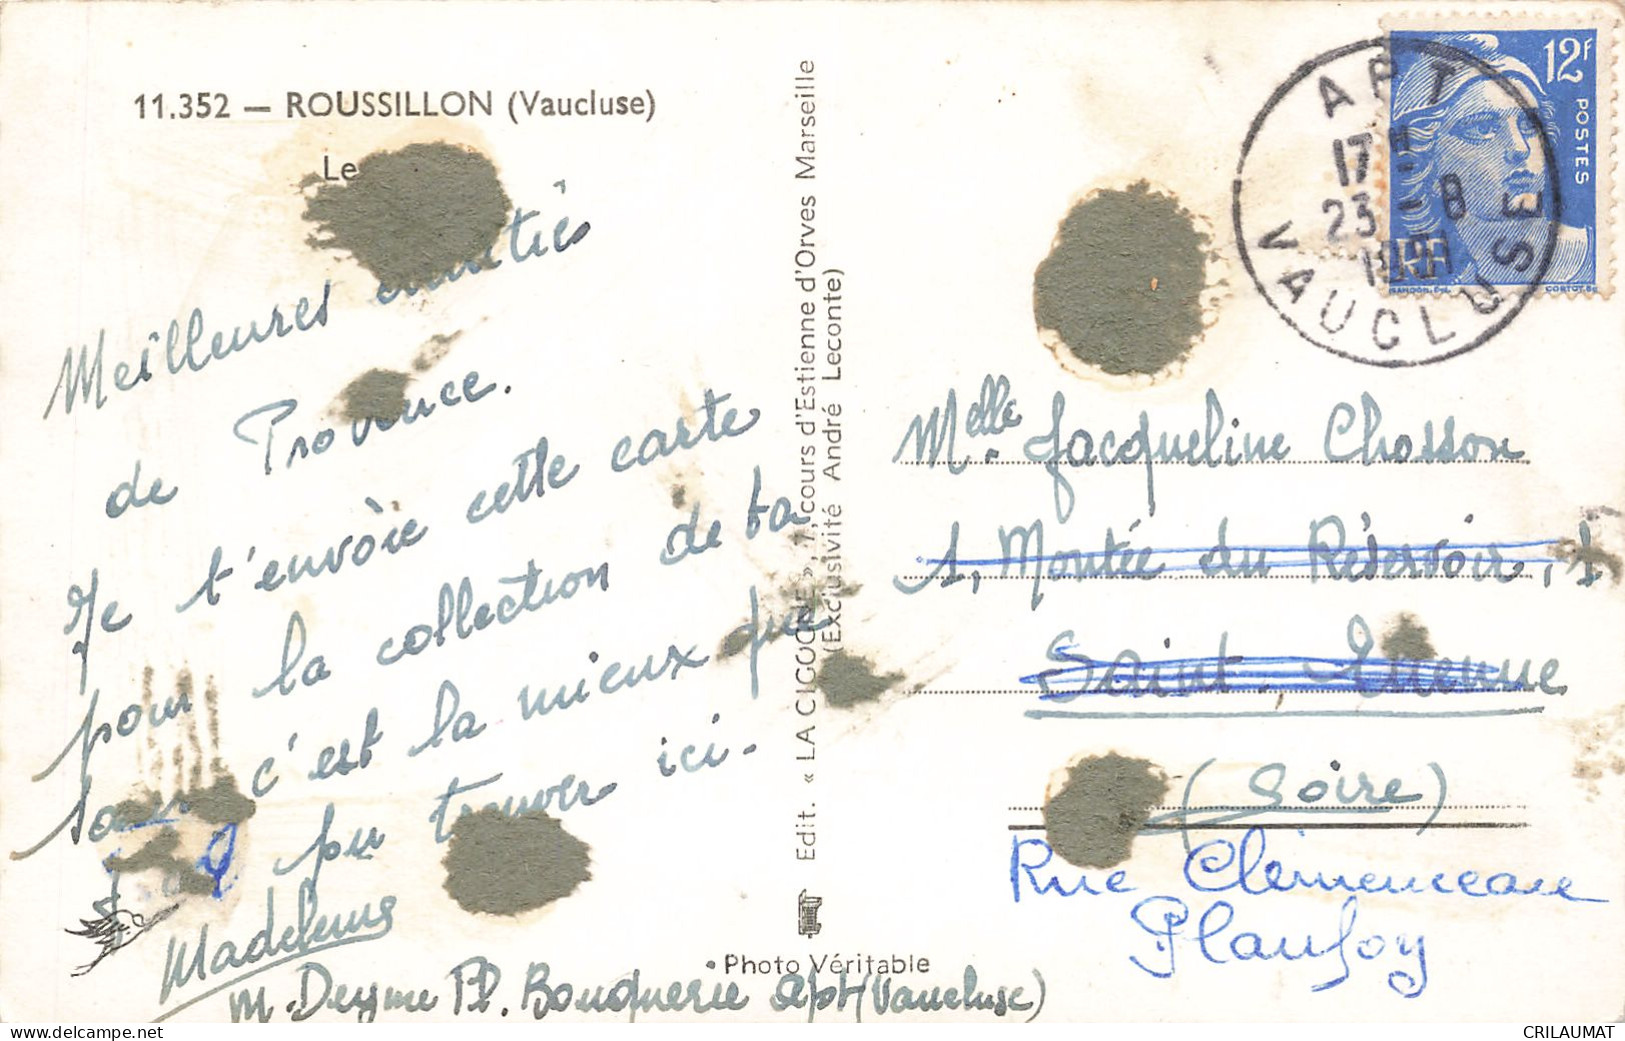 11.352 — ROUSSILLON (Vaucluse)
Le
Meilleures amitiés
de Provence.
Je t'envoie cette carte
pour la collection de ta
c'est la mieux que
pu trouver ici.
Madeleine
M. Deyme Pl. Bouquerie Apt (Vaucluse)
Edit. « LA CIGOGNE », 7, cours d'Estienne d'Orves Marseille
(Exclusivité André Leconte)
Photo Véritable
12F
POSTES
RF
GANDON. Del.
CORTOT. Sc
APT
17H
23 - 8
1951
VAUCLUSE
Melle. Jacqueline Chosson
1, Montée du Réservoir, 1
Saint. Etienne
(Loire)
Rue Clémenceau
Planfoy
CRILAUMAT